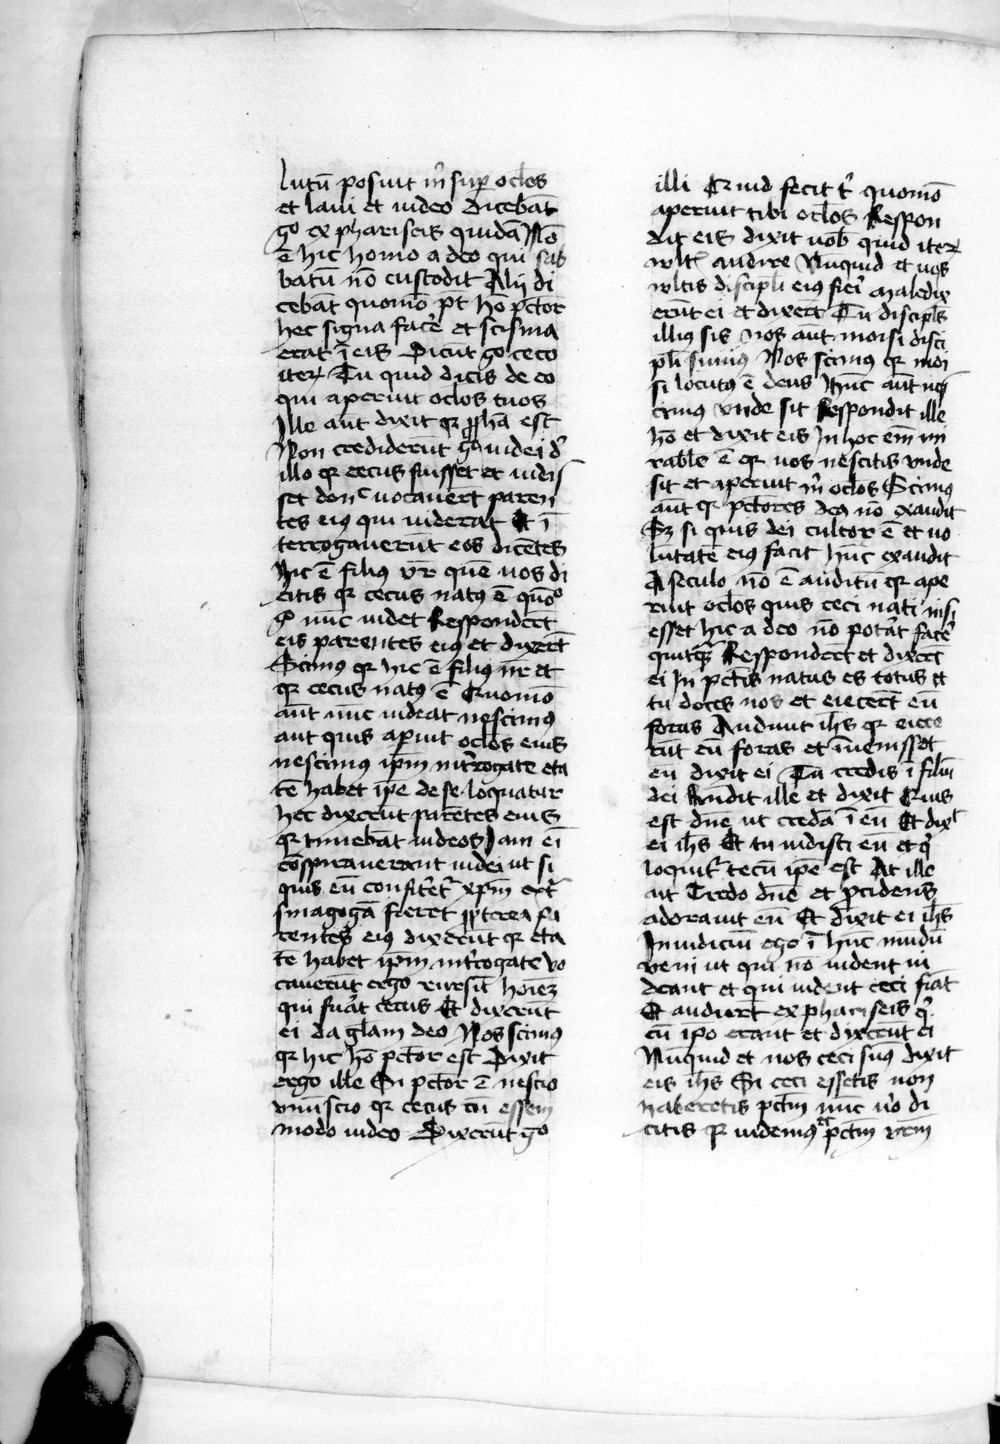 lutū posuit m̄ sup oclos
et laui et uideo dicebāt
go ex phariseis quidā Nō
ē hic homo a deo qui sab
batū nō custodit Alij di
cebāt quomō pt̄ hō pctōr
hec signa facē et scisma
erat ī eis Dicūt go ceco
iteꝝ Tu quid dicis de eo
qui aperuit oclos tuos
Ille aūt dixit qꝛ ꝓpha est
Non crediderūt go iudei d̄
illo qꝛ cecus fuisset et uidis
set donᶜ uocauert̄ paren
tes eiꝰ qui uiderat Et ī
terrogauerūt eos dicētes
hic ē filius vr̄ quē uos di
citis qꝛ cecus natꝰ ē quōo
go nūc uidet Respondert̄
eis parentes eiꝰ et dixert̄
Scimꝰ qꝛ hic ē filiꝰ nr̄ et
qꝛ cecus natꝰ ē Quomō
aūt nūc uideat nescimꝰ
aut quis apuit oclos eius
nescimꝰ ipm̄ int̄rogate eta
tē habet ipe de se loquatur
hec dixerūt parētes eius
qꝛ timebāt iudeos Jam eī
cōspirauerant iudei ut si
quis eū confitet̄ xpm̄ ext̄
sinagogā fieret ꝓpterea pa
rentes eiꝰ dixerūt qꝛ eta
tē habet ipm̄ int̄rogate vo
cauerūt ergo rursū hoiēꝫ
qui fuāt cecus Et dixerūt
ei da glam deo Nos scimꝰ
qꝛ hic hō pctōr est Dixit
ergo ille Si pctōr ē nescio
vnū scio qꝛ cecus cū essem
modo uideo Dixerūt go
illi Quid fecit t̄ quomō
aperuit tibi oclos Respon
dit eis dixi uob quid iteꝝ
wlt̄ audire Nūquid et uos
wltis discipli eiꝰ fieī maledix
erūt ei et dixert̄ Tu discipls
illius sis nos aūt moisi disci
pli sumꝰ Nos scimꝰ qꝛ moi
si locutꝰ ē deus hūc aūt nes
cimꝰ vnde sit Respondit ille
hō et dixit eis In hoc em̄ mi
rable ē qꝛ uos nescitis vnde
sit et aperuit m̄ oclos Scimꝰ
aūt qꝛ pctōres deꝰ nō exaudit
Sꝫ si quis dei cultor ē et uo
lūtatē eiꝰ facit hūc exaudit
A seculo nō ē auditū qꝛ ape
ruit oclos quis ceci nati nisi
esset hic a deo nō potāt facē
quitqꝫ Respondert̄ et dixert̄
ei In pctīs natus es totus et
tu doces nos et eiecert̄ eū
foras Audiuit ihs̄ qꝛ eiece
rūt eū foras et īuenisset
eū dixit ei Tu credis ī filiū
dei Rn̄dit ille et dixit Quis
est dn̄e ut credā ī eū Et dixᵗ
ei ihs̄ Et tu uidisti eū et q̄
loquit̄ tecū ipe est At ille
ait Credo dn̄e et ꝓcidens
adorauit eū Et dixit ei ihs̄
In iudiciū ego ī hūc mūdū
veni ut qui nō uident ui
deant et qui uident ceci fiāt
Et audiert̄ ex phariseis q̄
cū ipo erant et dixerūt ei
Nūquid et nos ceci suꝰ dixit
eis ihs̄ Si ceci essetis non
haberetis pctm̄ nūc ūo di
citis qꝛ uidemꝰ et pctm̄ vrm̄